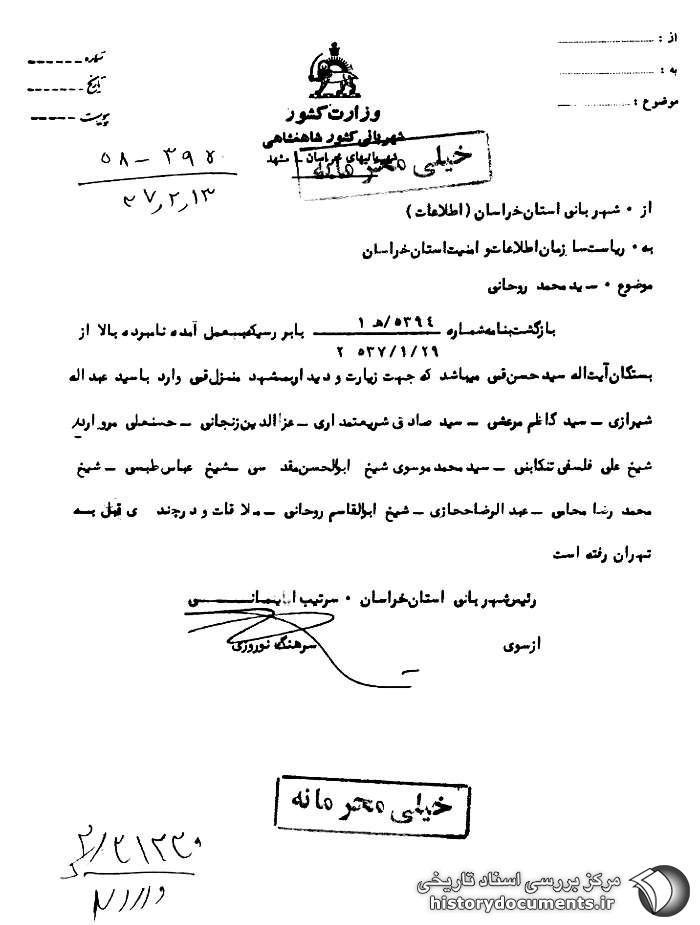 از :
به :
موضوع :
شماره
تاریخ
پیوست
وزارت کشور
شهربانی کشور شاهنشاهی
شهربانیهای خراسان - مشهد
خیلی محرمانه
۳۷٫۲٫۱۳
از ۰ شهربانی استان خراسان (اطلاعات)
به ۰ ریاست سازمان اطلاعات و امنیت استان خراسان
موضوع ۰ سید محمد روحانی
بازگشت بنامه شماره ۵۳۹٤/هـ ۱ بابررسیکه بعمل آمده نامبرده بالا از
۲۵۳۷/۱/۲۹
بستگان آیت اله سید حسن قمی میباشد که جهت زیارت و دیدار بمشهد منزل قمی وارد با سید عبداله
شیرازی – سید کاظم مرعشی – سید صادق شریعتمداری – عزالدین زنجانی – حسنعلی مروارید
شیخ علی فلسفی تنکابنی – سید محمد موسوی شیخ ابوالحسن مقدسی – شیخ عباس طبسی – شیخ
محمد رضا محامی – عبدالرضا حجازی – شیخ ابوالقاسم روحانی – ملاقات و در چندی قبل به
تهران رفته است
رئیس شهربانی استان خراسان ۰ سرتیپ
از سوی سرهنگ نوروزی
خیلی محرمانه
مرکز بررسی اسناد تاریخی
historydocuments.ir